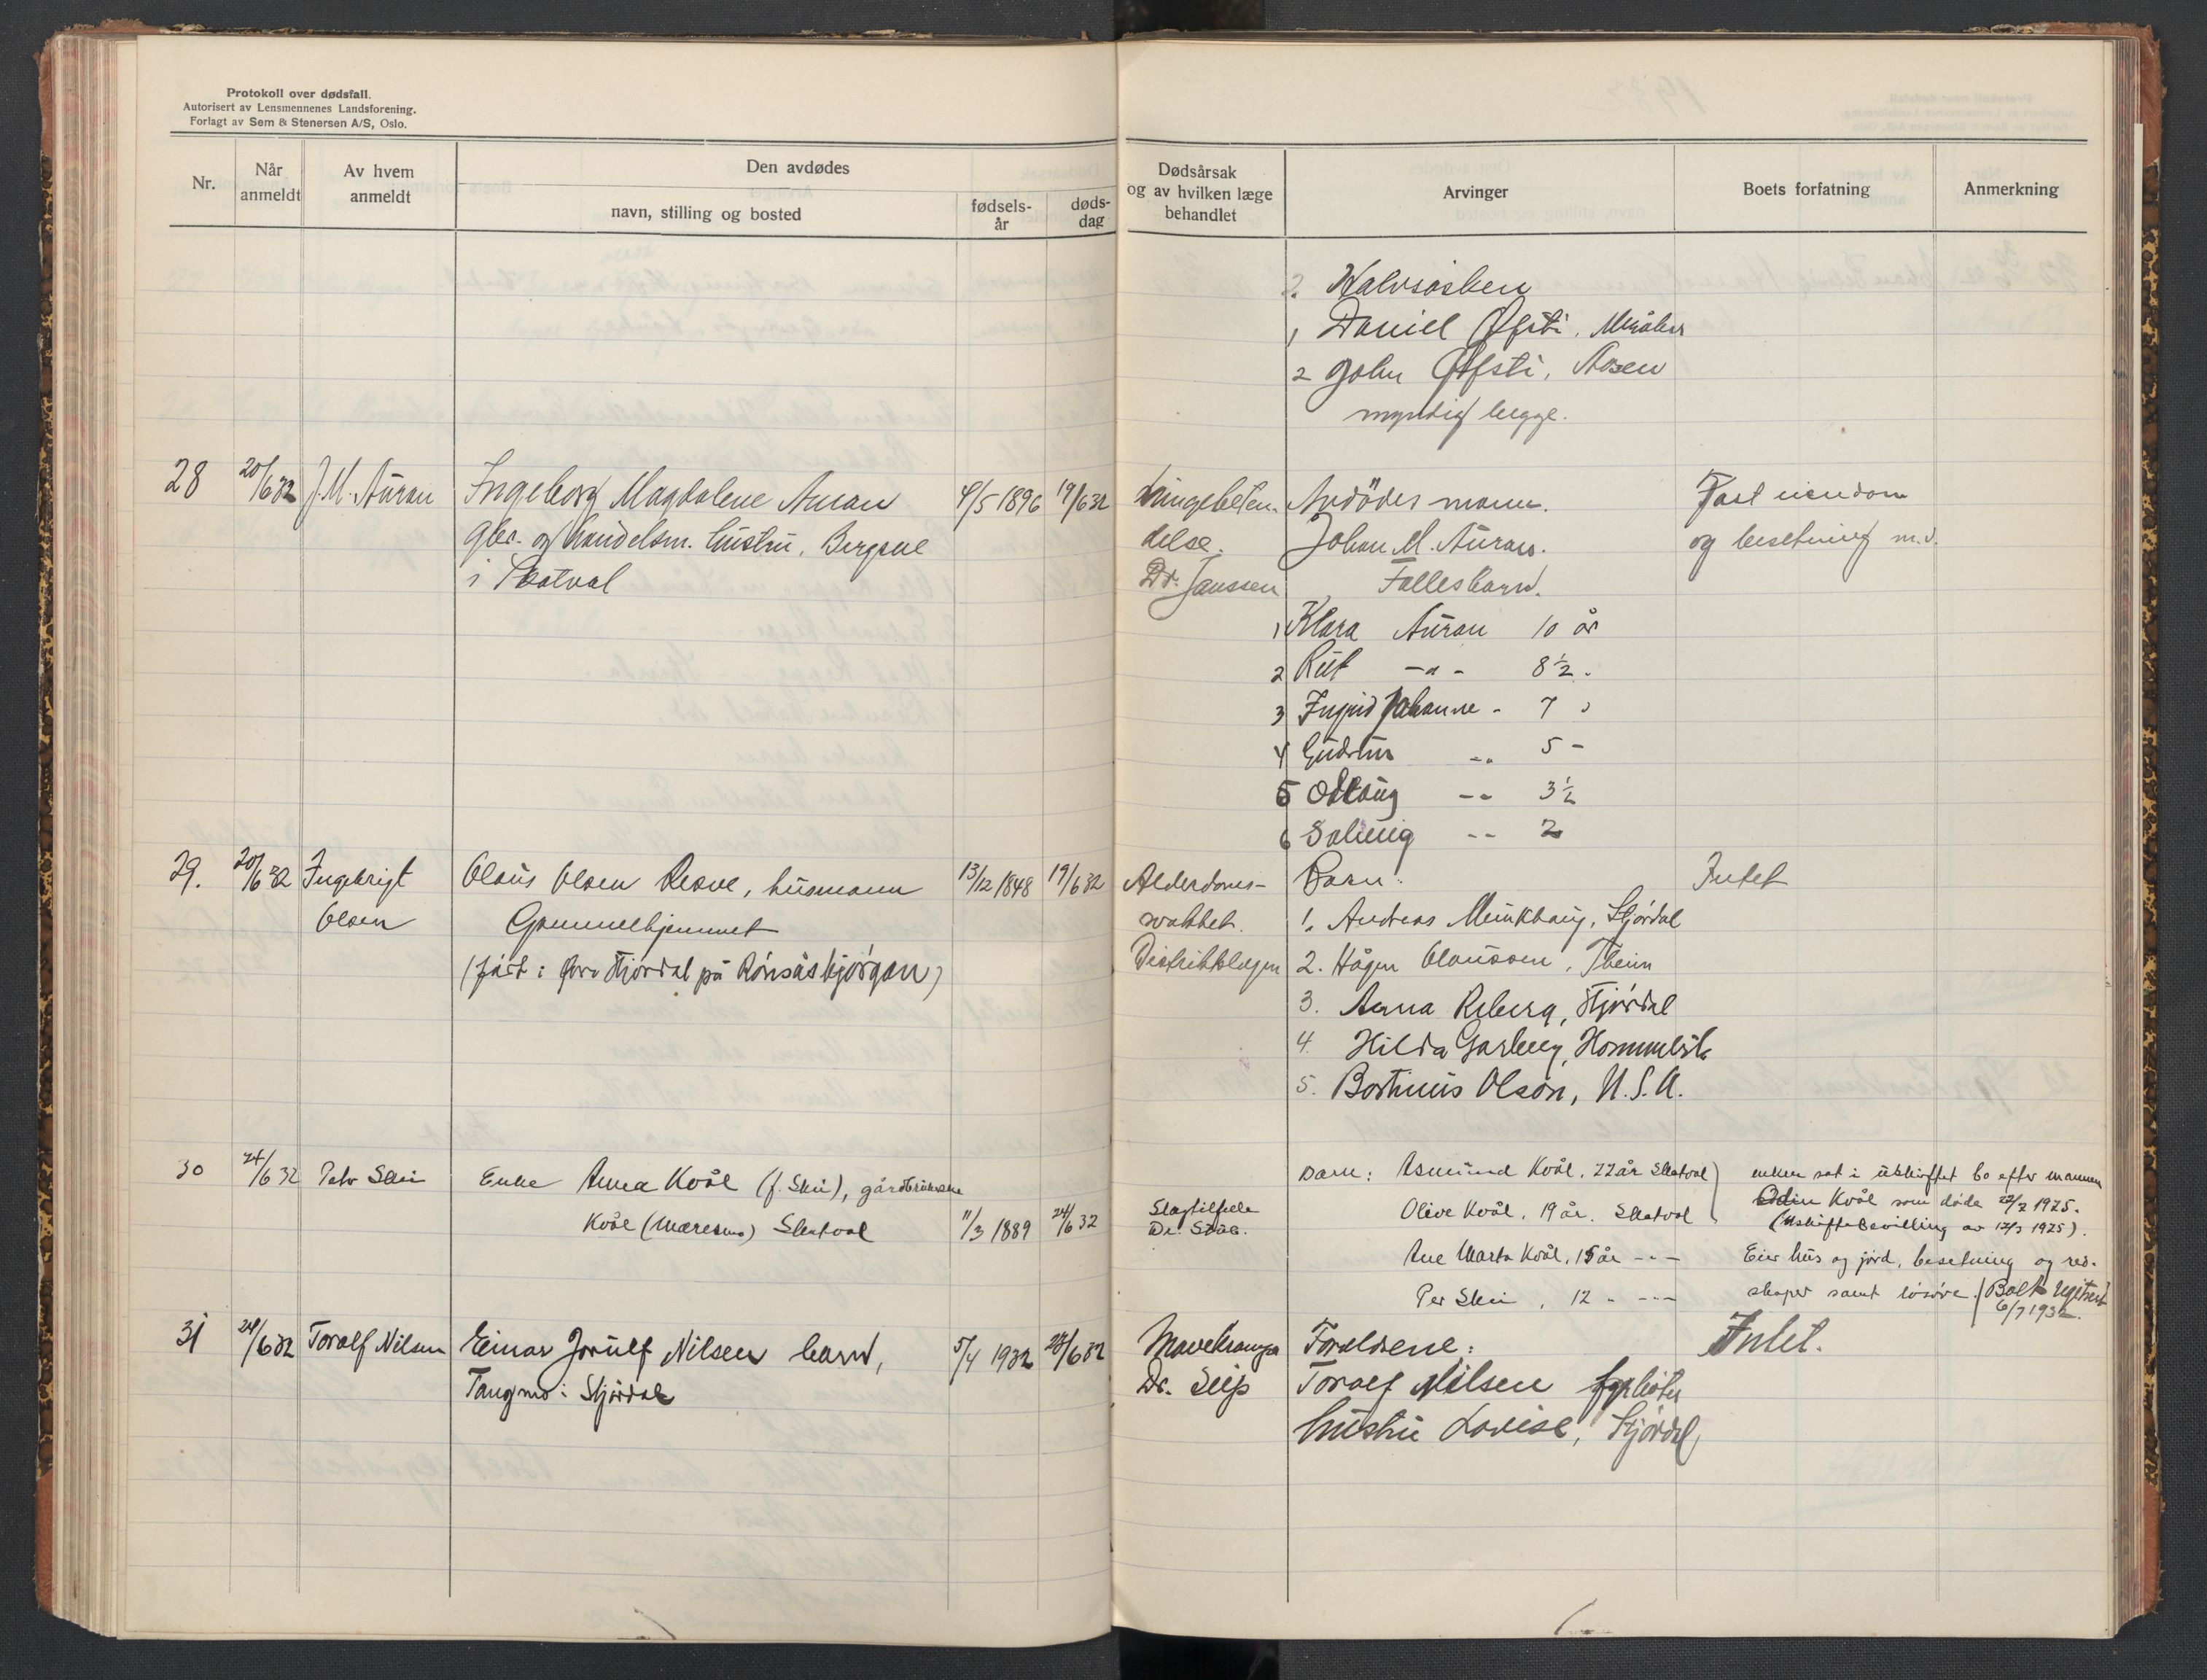 Protokoll over dødsfall.
Autorisert av Lensmennenes Landsforening.
Forlagt av Sem & Stenersen A/S, Oslo.
Nr.
Når anmeldt
Av hvem anmeldt
Den avdødes
navn, stilling og bosted
fødsels-år
døds-dag
Dødsårsak og av hvilken læge behandlet
Arvinger
Boets forfatning
Anmerkning
2. Halvsøsken
1 Daniel Øfsti,
2 John Øfsti, Aasen
myndig begge.
28 20/6 32 J. M. Auran Ingeborg Magdalene Auran 4/5 1896 19/6 32 Lungebeten- Avdödes mann. Fast eiendom
gbr. og handelsm. hustru, Bergsve delse. Johan M. Auran. og besetning m.v.
i Skatval Dr. Janssen Fellesbarn.
1 Klara Auran 10 år
2 Rut -"- 8 ½ -
3 Ingrid Johanne - 7 "
4 Gudrun -"- 5 -
5 Odlaug -"- 3 ½
6 Solveig -"- 2
29. 20/6 32 Ingebrigt Olaus Olsen Resve, husmann 13/12 1848 19/6 32 Alderdoms- Barn: Intet
Olsen Gammelhjemmet svakhet. 1. Andreas Munkhaug, Stjørdal
(født i Øvre Stjørdal på Rönsåsbjørgan) Distriktslægen 2. Hågen Olaussen, Theim
3. Anna Reberg, Stjørdal
4. Hilda Garberg, Hommelvik
5. Bortinus Olson, U.S.A.
30 24/6 32 Petr Skei Enke Anna Kvål (f. Skei), gårdbrukerske Barn: Asmund Kvål, 22 år Skatval enken sat i uskiftet bo efter mannen
Kvål (Mæresmo) Skatval 11/3 1889 24/6 32 Slagtilfelle Olive Kvål, 19 år. Skatval Odin Kvål som døde 22/2 1925.
Dr. (Uskiftebevilling av 12/3 1925).
Ane Marta Kvål, 15 år -"- Eier hus og jord, besetning og red-
Per Skei, 12 " -"- skaper samt løsøre. (Boet registrert
6/7 1932.
31 24/6 32 Toralf Nilsen Einar Jorulf Nilsen barn, 5/4 1932 23/6 32 Mavekrampe Foreldrene: Intet.
Tangmo i Stjørdal Dr. Seip Toralf Nilsen fyrbøter
hustru Lovise, Stjørdal